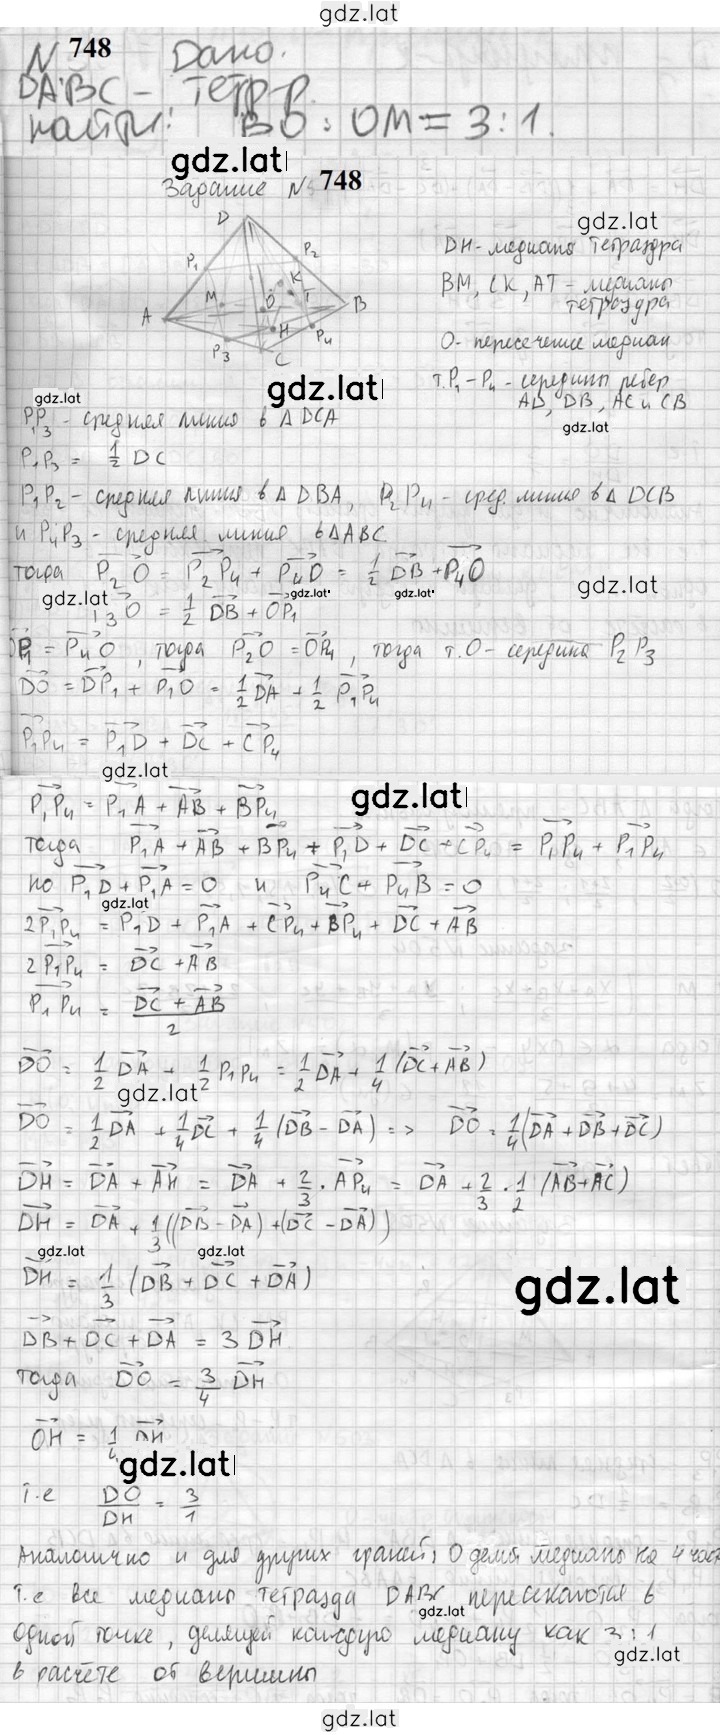 gdz.latl
N 748 Дано:
DABC - тетр-р.
найти: BO : OM = 3:1.
gdz.latl
Задание № 748
gdz.lat
D
P₁ P₂
K
M O T
A B
H
P₃ P₄
C
DH - медиана тетраэдра
BM, CK, AT - медианы
тетраэдра
O - пересечение медиан
т. P₁ - P₄ - середины ребер
AD, DB, AC и CB
gdz.lat
gdz.latl
gdz.lat
P₁P₃ - средняя линия в △ DCA
P₁P₃ = 1/2 DC
P₁P₂ - средняя линия в △ DBA, P₂P₄ - сред. линия в △ DCB
и P₄P₃ - средняя линия в △ABC
тогда P₂O = P₂P₄ + P₄O = 1/2 DB + P₄O
gdz.lat gdz.lat gdz.lat gdz.lat
₃O = 1/2 DB + OP₁
OP₁ = P₄O, тогда P₂O = OP₄, тогда т. O - середина P₂P₃
DO = DP₁ + P₁O = 1/2 DA + 1/2 P₁P₄
P₁P₄ = P₁D + DC + CP₄
gdz.lat
P₁P₄ = P₁A + AB + BP₄
gdz.latl
тогда P₁A + AB + BP₄ + P₁D + DC + CP₄ = P₁P₄ + P₁P₄
но P₁D + P₁A = 0 и P₄C + P₄B = 0
gdz.lat
2P₁P₄ = P₁D + P₁A + CP₄ + BP₄ + DC + AB
2P₁P₄ = DC + AB
P₁P₄ = (DC + AB)/2
DO = 1/2 DA + 1/2 P₁P₄ = 1/2 DA + 1/4 (DC + AB)
gdz.latl
DO = 1/2 DA + 1/4 DC + 1/4 (DB - DA) => DO = 1/4 (DA + DB + DC)
DH = DA + AH = DA + 2/3 · AP₄ = DA + 2/3 · 1/2 (AB + AC)
DH = DA + 1/3 ((DB - DA) + (DC - DA))
gdz.lat gdz.lat
DH = 1/3 (DB + DC + DA)
gdz.lat
DB + DC + DA = 3 DH
тогда DO = 3/4 DH
OH = 1/4 DH
gdz.latl
т.е DO/DH = 3/1
Аналогично и для других граней, O
медианы на 4 част
т.е все медианы тетраэда DABC пересекаются в
gdz.lat
одной точке, делящей каждую медиану как 3:1
gdz.lat
в расчёте от вершины
gdz.lat